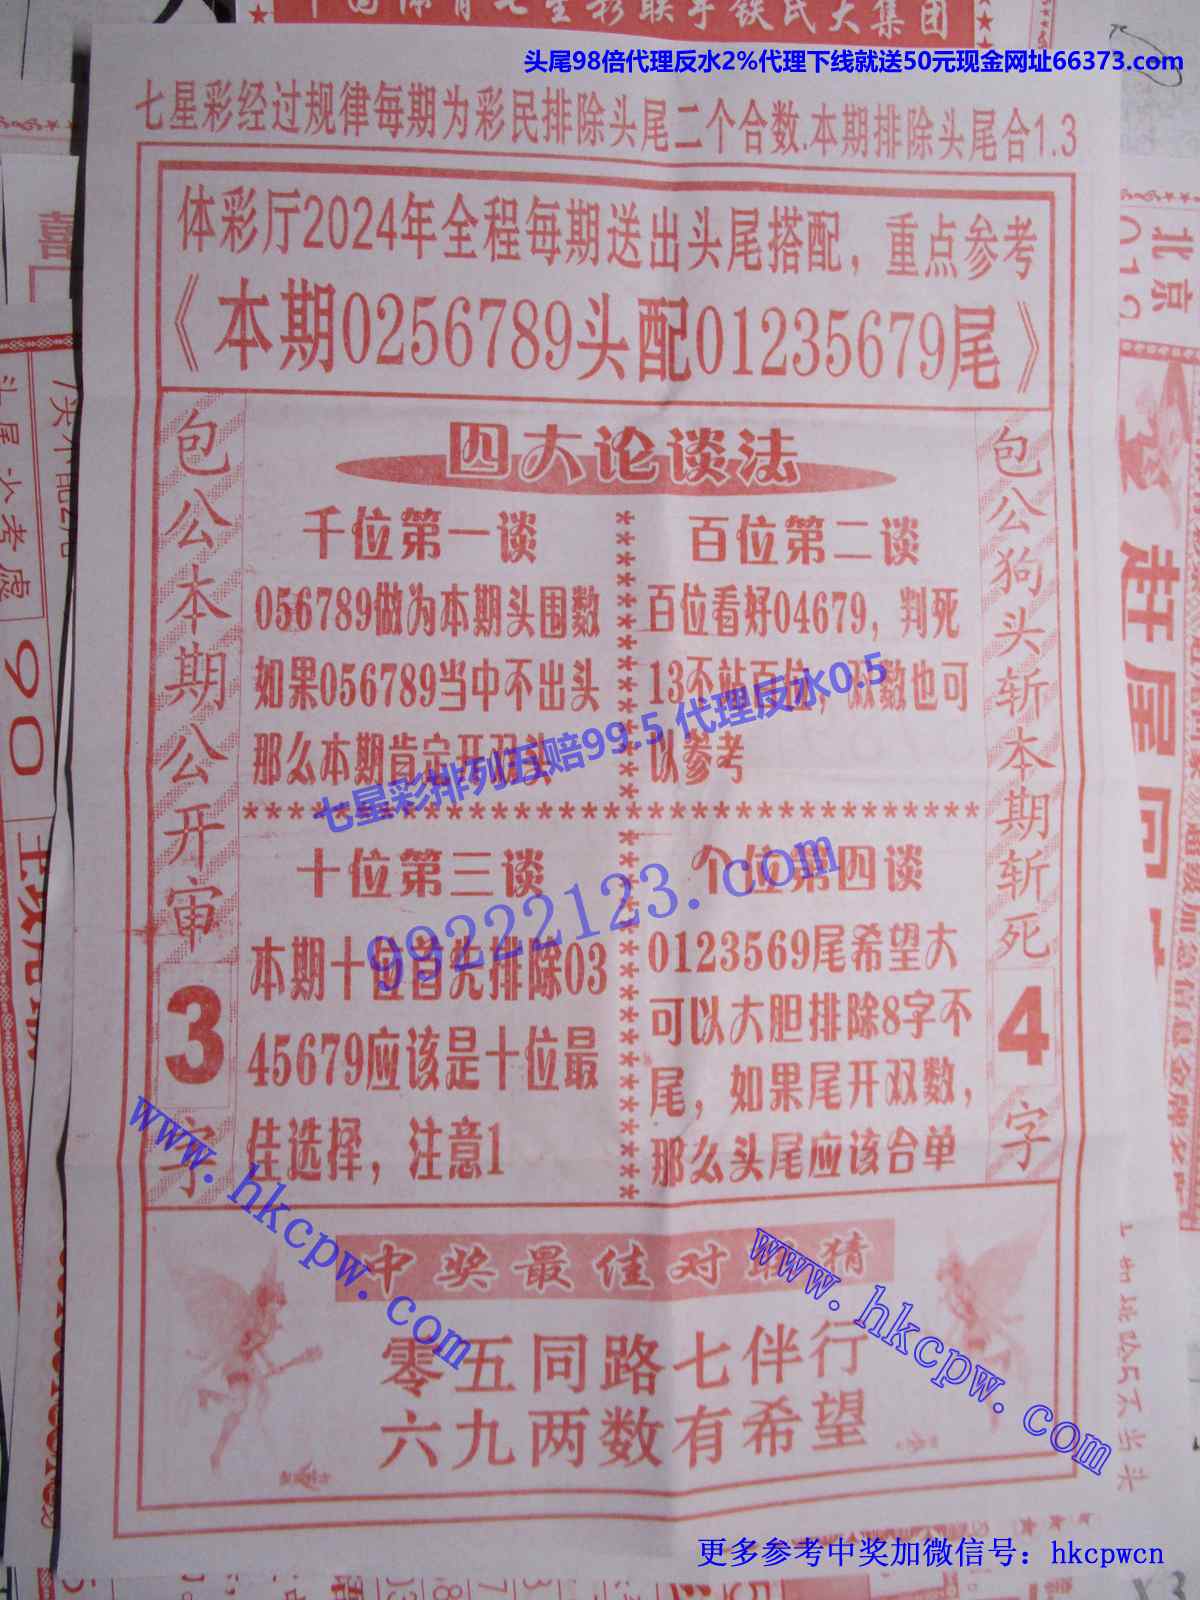 中国体育七星彩联手铁民大集团
头尾98倍代理反水2%代理下线就送50元现金网址66373.com
七星彩经过规律每期为彩民排除头尾二个合数.本期排除头尾合1.3
体彩厅2024年全程每期送出头尾搭配，重点参考
《本期0256789头配01235679尾》
包公本期公开审3字
四大论谈法
千位第一谈
056789做为本期头围数
如果056789当中不出头
那么本期肯定开双头
百位第二谈
百位看好04679，判死
13不站百位，双数也可
以参考
七星彩排列五赔99.5 代理反水0.5
99222123.com
十位第三谈
本期十位首先排除03
45679应该是十位最
佳选择，注意1
个位第四谈
0123569尾希望大
可以大胆排除8字不
尾，如果尾开双数，
那么头尾应该合单
包公狗头斩本期斩死4字
www.hkcpw.com
www.hkcpw.com
中奖最佳对联猜
零五同路七伴行
六九两数有希望
更多参考中奖加微信号：hkcpwcn
喜
头尾少考虑
90
北京
赶尾向